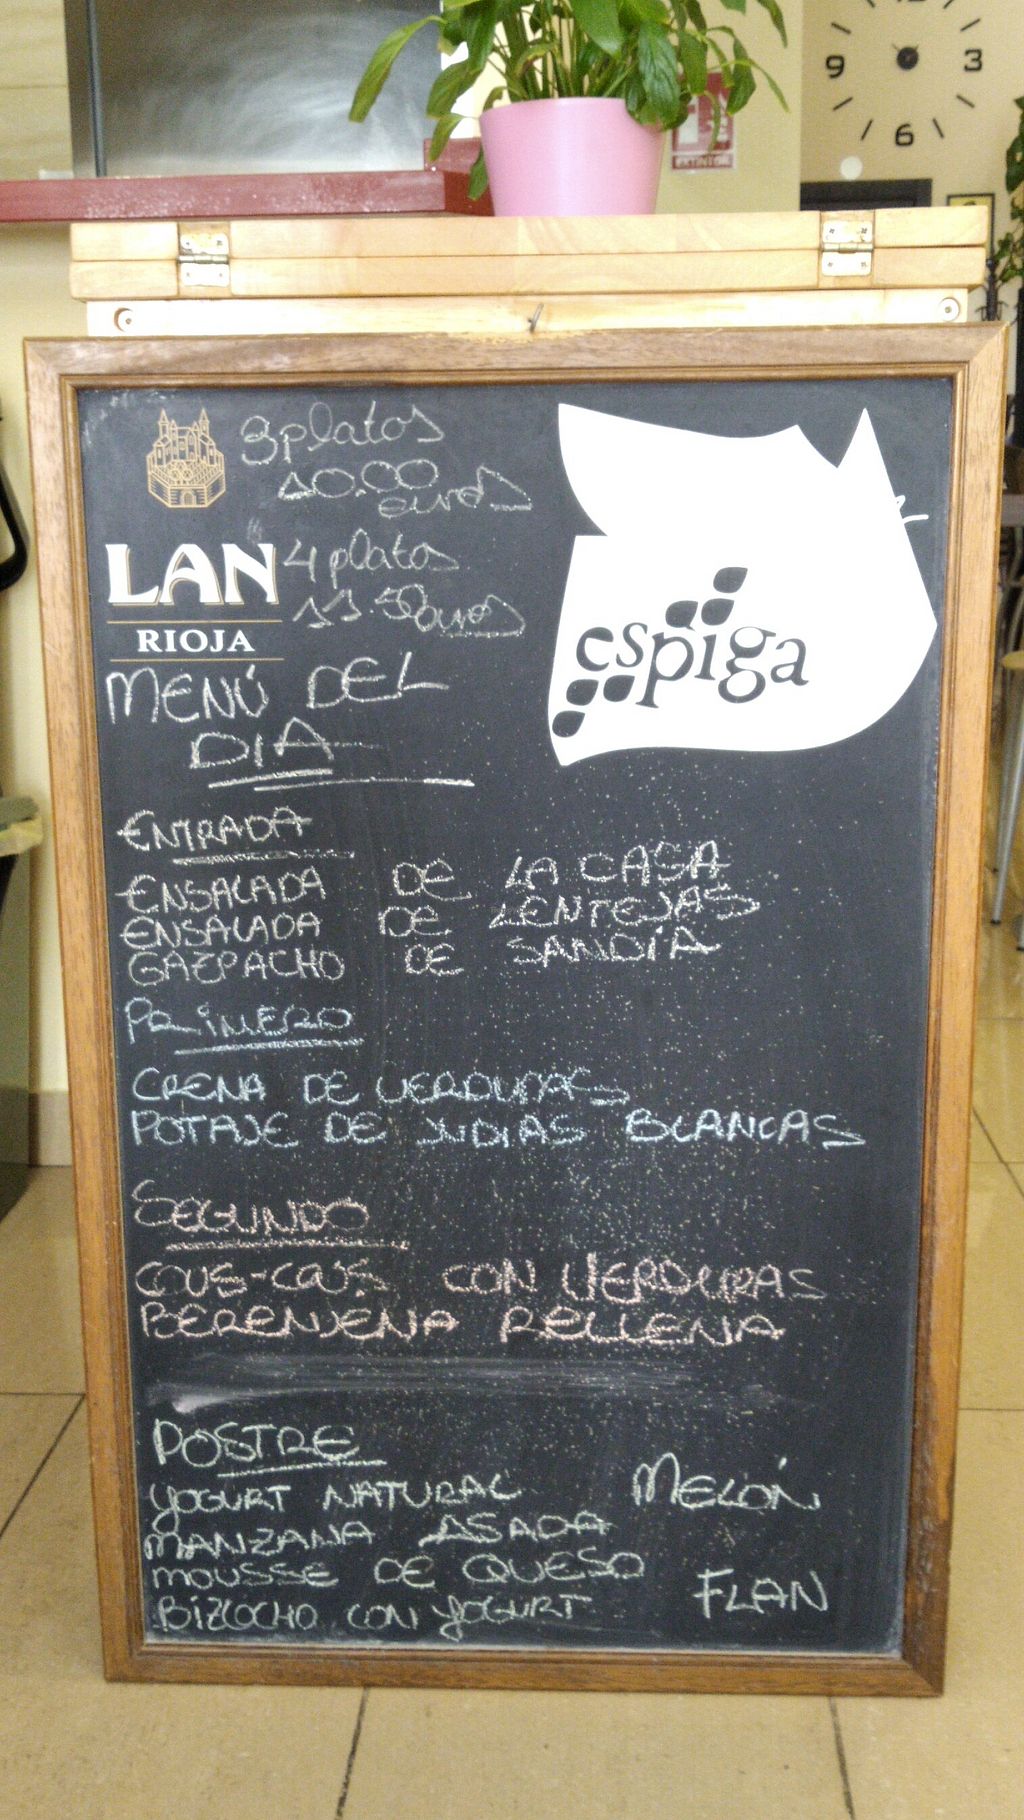 9 3
6
EXTINTOR
3 platos
10.00
euros
LAN
RIOJA
4 platos
11.50 euros
espiga
MENÚ DEL
DIA
ENTRADA
ENSALADA DE LA CASA
ENSALADA DE LENTEJAS
GAZPACHO DE SANDÍA
PRIMERO
CREMA DE VERDURAS
POTAJE DE JUDIAS BLANCAS
SEGUNDO
COUS-COUS CON VERDURAS
BERENJENA RELLENA
POSTRE
YOGURT NATURAL MELÓN
MANZANA ASADA
MOUSSE DE QUESO FLAN
BIZCOCHO CON YOGURT